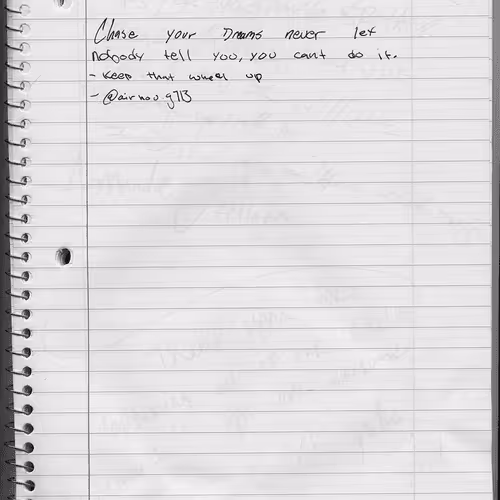 Chase your Dreams never let
nobody tell you, you cant do it.
- Keep that wheel up